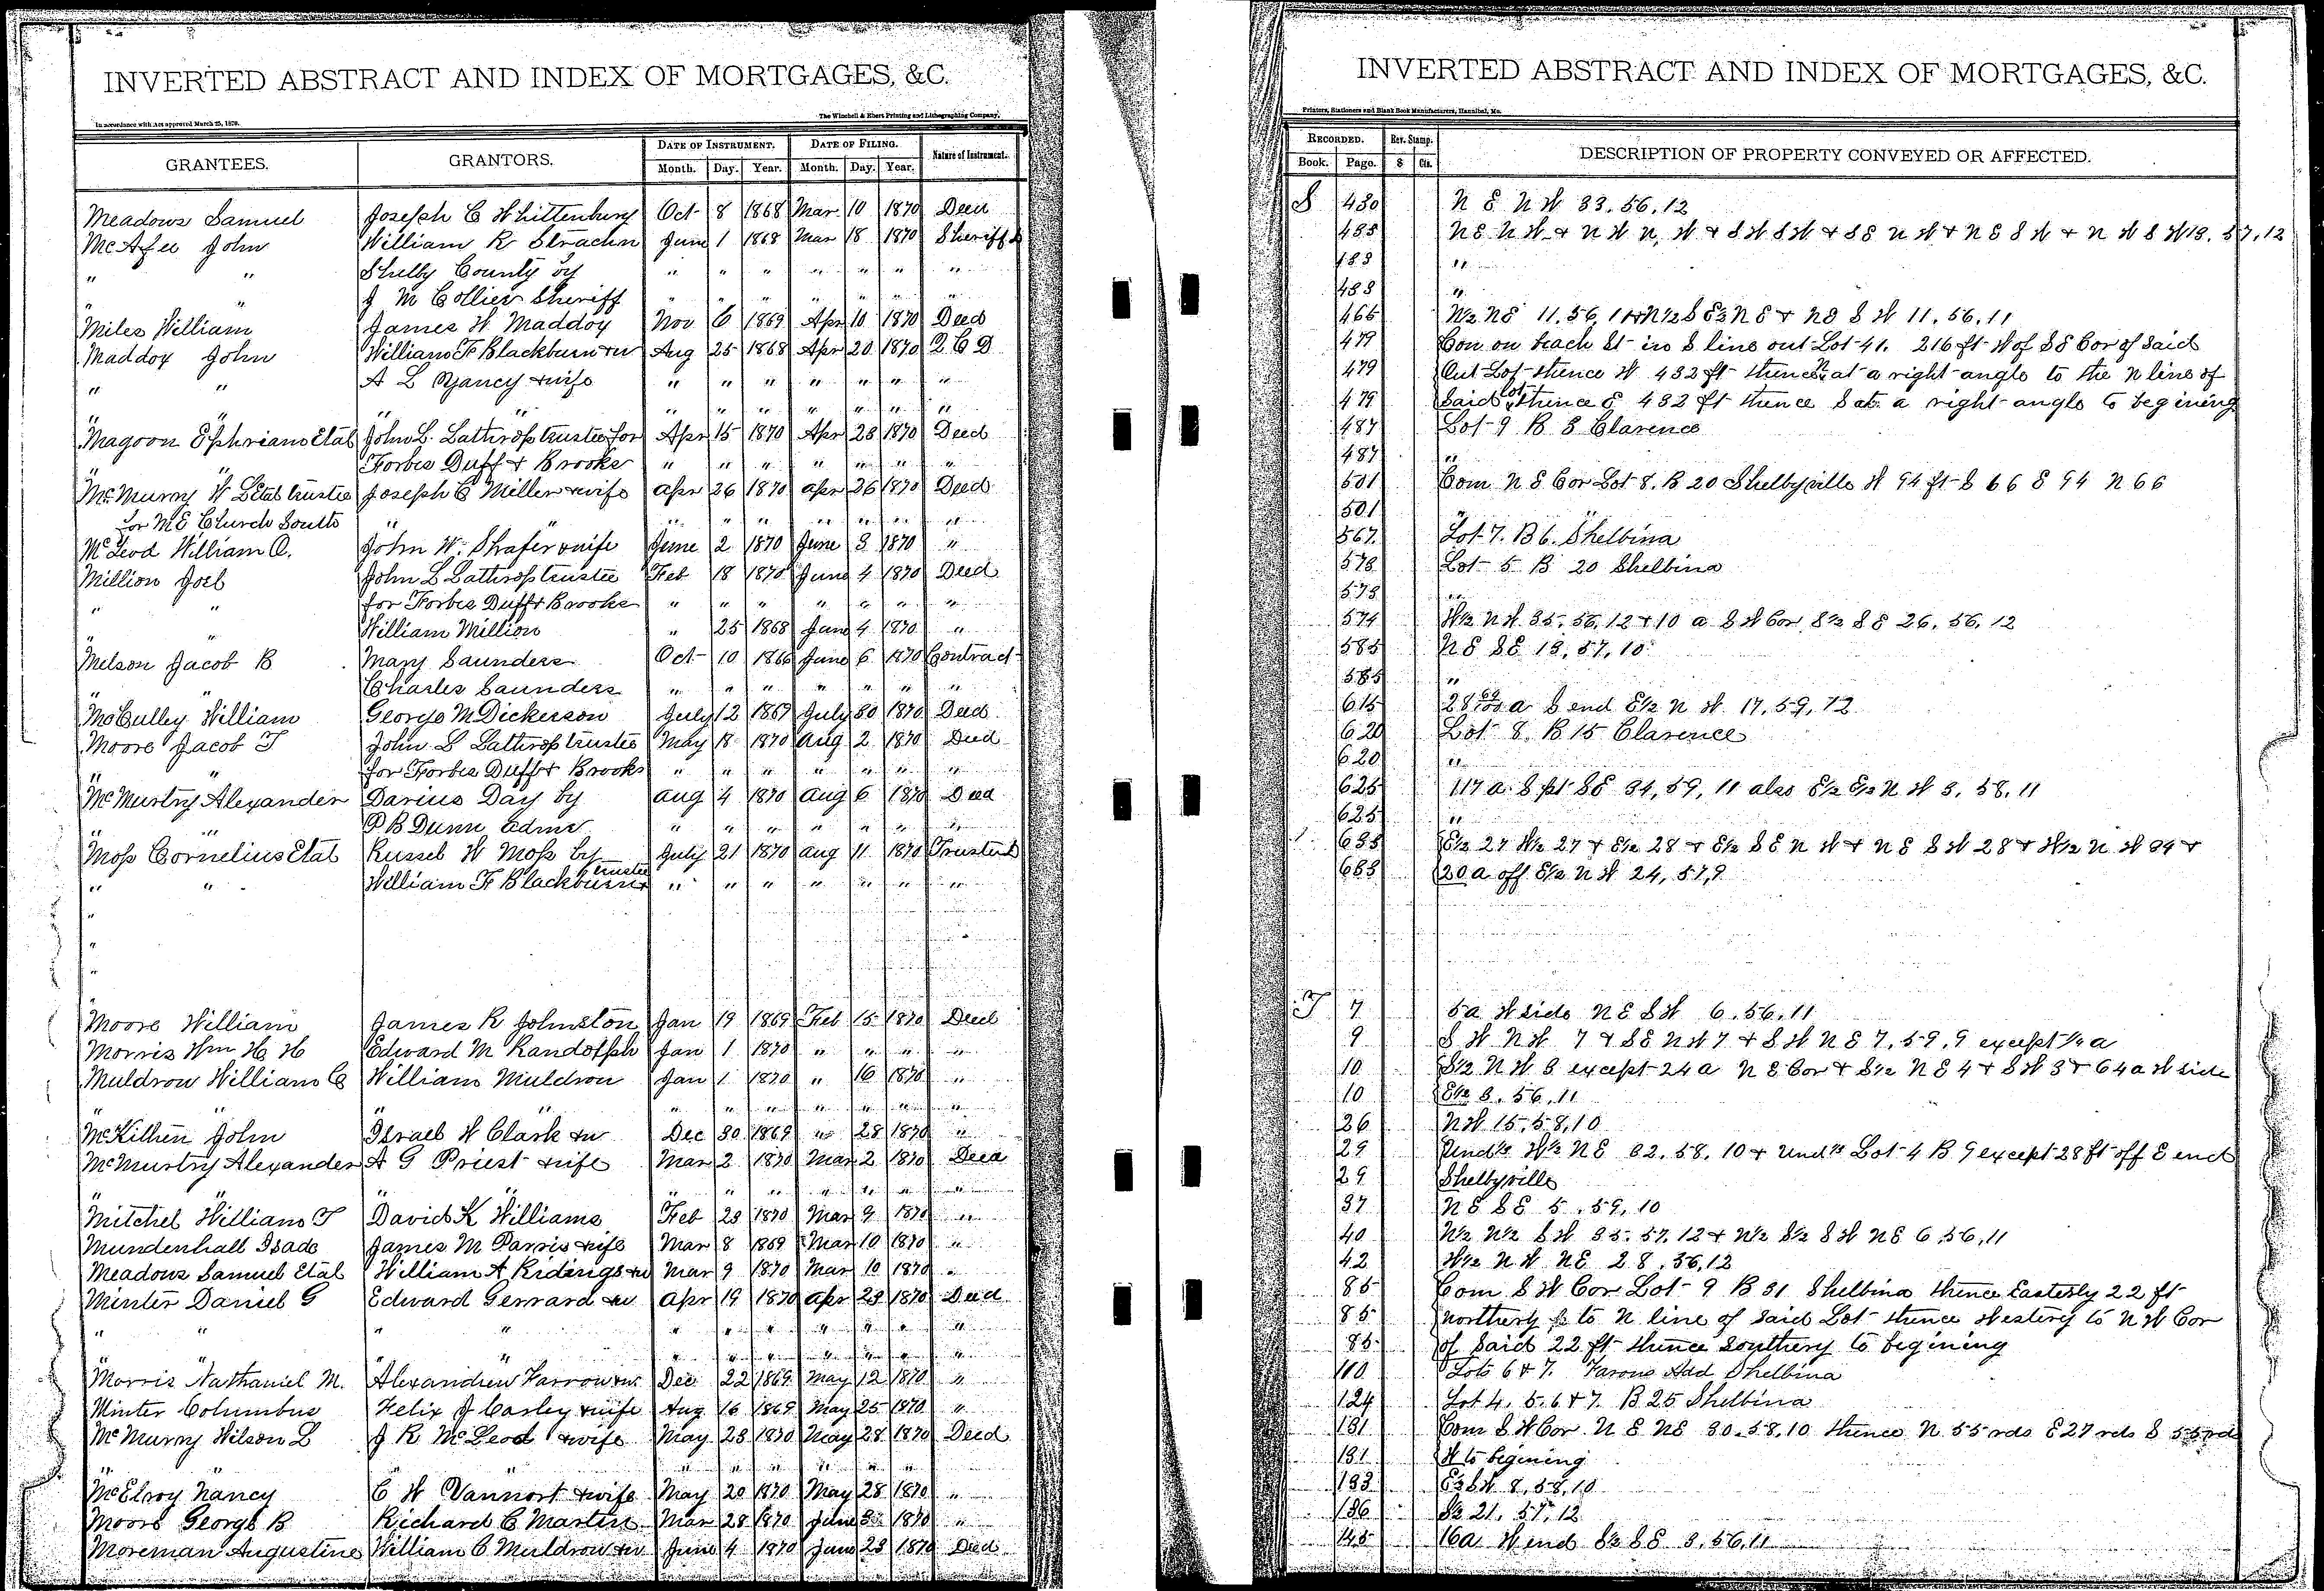 INVERTED ABSTRACT AND INDEX OF MORTGAGES, &C.
In accordance with Act approved March 25, 1870.
The Winchell & Ebert Printing and Lithographing Company,
GRANTEES. GRANTORS. DATE OF INSTRUMENT. DATE OF FILING. Nature of Instrument.
Month. Day. Year. Month. Day. Year.
Meadows Samuel Joseph C Whittenburg Oct 8 1868 Mar 10 1870 Deed
McAfee John William R Strachn June 1 1868 Mar 18 1870 Sheriffs
" " Shelby County by " " " " " " "
" " J M Collier Sheriff " " " " " " "
Miles William James W Maddox Nov 6 1869 Apr 10 1870 Deed
Maddox John William F Blackburn &w Aug 25 1868 Apr 20 1870 Q C D
" " A L Yancy & wife " " " " " " "
" " " " " " " " " " "
Magoon Ephriam Etal John L. Lathrop trustee for Apr 15 1870 Apr 28 1870 Deed
Forbes Duff & Brooks " " " " " " "
McMurry W L Etal trustee Joseph C Miller & wife Apr 26 1870 Apr 26 1870 Deed
for M E Church South " " " " " " " "
McLeod William O. John W. Shafer & wife June 2 1870 June 3 1870 "
Million Joel John L Lathrop trustee Feb 18 1870 June 4 1870 Deed
" " for Forbes Duff & Brooks " " " " " " "
" " William Million " 25 1868 June 4 1870 "
Melson Jacob B Mary Saunders Oct 10 1866 June 6 1870 Contract
" " Charles Saunders " " " " " " "
McCulley William George M Dickerson July 12 1867 July 30 1870 Deed
Moore Jacob T John L Lathrop trustee May 18 1870 Aug 2 1870 Deed
" " for Forbes Duff & Brooks " " " " " " "
McMurtry Alexander Darius Day by Aug 4 1870 Aug 6 1870 Deed
" " P B Dunn admr " " " " " " "
Moss Cornelius Etal Russel W Moss by July 21 1870 Aug 11 1870 Trusteed
" " William F Blackburn trustee " " " " " " "
"
"
"
"
Moore William James R Johnston Jan 19 1869 Feb 15 1870 Deed
Morris Wm H H Edward M Randolph Jan 1 1870 " " " "
Muldrow William C William Muldrow Jan 1 1870 " 16 1870 "
" " " " " " " " "
McKillen John Israel W Clark &w Dec 30 1869 " 28 1870 "
McMurtry Alexander A G Priest & wife Mar 2 1870 Mar 2 1870 Deed
" " " " " " " " "
Mitchel William T David K Williams Feb 23 1870 Mar 9 1870 "
Mundenhall Isade James M Parris & wife Mar 8 1869 Mar 10 1870 "
Meadows Samuel Etal William A Ridings &w Mar 9 1870 Mar 10 1870 "
Minter Daniel G Edward Gerrard &w Apr 19 1870 Apr 23 1870 Deed
" " " " " " " " " " "
" " " " " " " " " "
Morris Nathaniel M. Alexandrew Farrow &w Dec 22 1869 May 12 1870 "
Minter Columbus Felix J Carley & wife Aug 16 1869 May 25 1870 "
McMurry Wilson L J R McLeod & wife May 28 1870 May 28 1870 Deed
" " " " " " " " "
McElroy Nancy C W Vannort & wife May 20 1870 May 28 1870 "
Moore George B Richard C Martin Mar 28 1870 June 3 1870 "
Moreman Augustine William C Muldrow &w June 4 1870 June 23 1870 Deed
INVERTED ABSTRACT AND INDEX OF MORTGAGES, &C.
Printers, Stationers and Blank Book Manufacturers, Hannibal, Mo.
RECORDED. Rev. Stamp. DESCRIPTION OF PROPERTY CONVEYED OR AFFECTED.
Book. Page. $ Cts.
S 430 N E N W 33, 56, 12
485 N E N W & N W N W & S W S W & S E N W & N E S W & N W S W 18, 57, 12
483 "
483 "
466 N½ NE 11, 56, 11 & N½ S E½ N E & N E S W 11, 56, 11
479 Con on beach St in S line out Lot 41. 216 ft W of S E Cor of Said
479 Out Lot thence W 432 ft thence N at a right angle to the N line of
479 Said lot thence E 432 ft thence S at a right angle to begining
487 Lot 9 B 8 Clarence
487 "
501 Com N E Cor Lot 8. B 20 Shelbyville W 94 ft S 66 E 94 N 66
501 "
567 Lot 7. B 6. Shelbina
573 Lot 5 B 20 Shelbina
573 "
574 W½ N W 35, 56, 12 & 10 a S W Cor S½ S E 26, 56, 12
585 N E S E 13, 57, 10
585 "
615 28 a S end E½ N W 17, 59, 12
620 Lot 8. B 15 Clarence
620 "
625 117 a S pt S E 34, 59, 11 also E½ E½ N W 3, 58, 11
625 "
633 E½ 27 W½ 27 & E½ 28 & E½ S E N W & N E S W 28 & W½ N W 34 &
633 20 a off E½ N W 24, 57, 9
T 7 5 a W side N E S W 6, 56, 11
9 S W N W 7 & S E N W 7 & S W N E 7, 59, 9 except ½ a
10 S½ N W 3 except 24 a N E Cor & S½ N E 4 & S W 3 & 64 a W side
10 E½ 3, 56, 11
26 N W 15, 58, 10
29 Und½ W½ N E 32, 58, 10 & Und½ Lot 4 B 9 except 28 ft off E end
29 Shelbyville
37 N E S E 5, 59, 10
40 N½ N½ S W 35, 57, 12 & N½ S½ S W NE 6, 56, 11
42 W½ N W NE 28, 56, 12
85 Com S W Cor Lot 9 B 31 Shelbina thence Easterly 22 ft
85 northerly to N line of said Lot thence Westerly to N W Cor
85 of said 22 ft thence southerly to begining
110 Lots 6 & 7. Farons Add Shelbina
124 Lot 4, 5, 6 & 7. B 25 Shelbina
131 Com S W Cor N E NE 30, 58, 10 thence N 55 rds E 27 rds S 55 rds
131 W to begining
133 E½ S W 8, 58, 10
136 S½ 21, 57, 12
145 16 a W end S½ S E 3, 56, 11